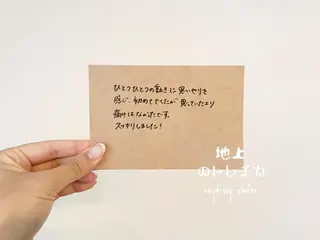 ひとつひとつの動きに思いやりを
感じ、初めてでしたが 思っていたより
痛みはなかったです。
スッキリしました!
地上
のトレチカ